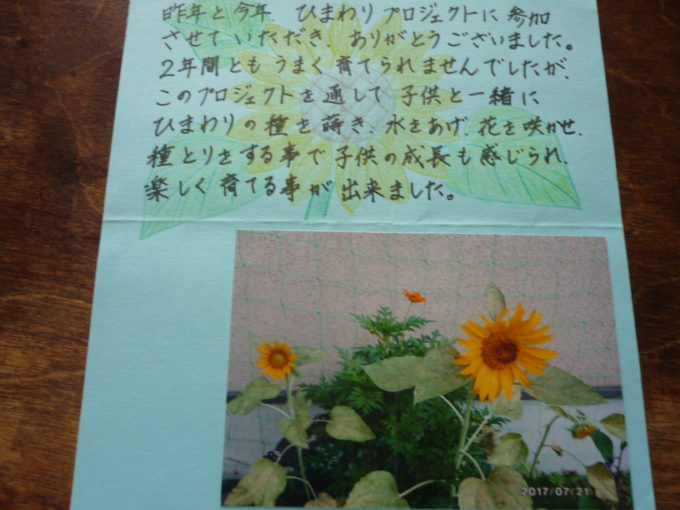 昨年と今年 ひまわりプロジェクトに参加
させていただき、ありがとうございました。
2年間ともうまく育てられませんでしたが、
このプロジェクトを通して子供と一緒に
ひまわりの種を蒔き、水をあげ、花を咲かせ、
種とりをする事で子供の成長も感じられ、
楽しく育てる事が出来ました。
2017/07/21